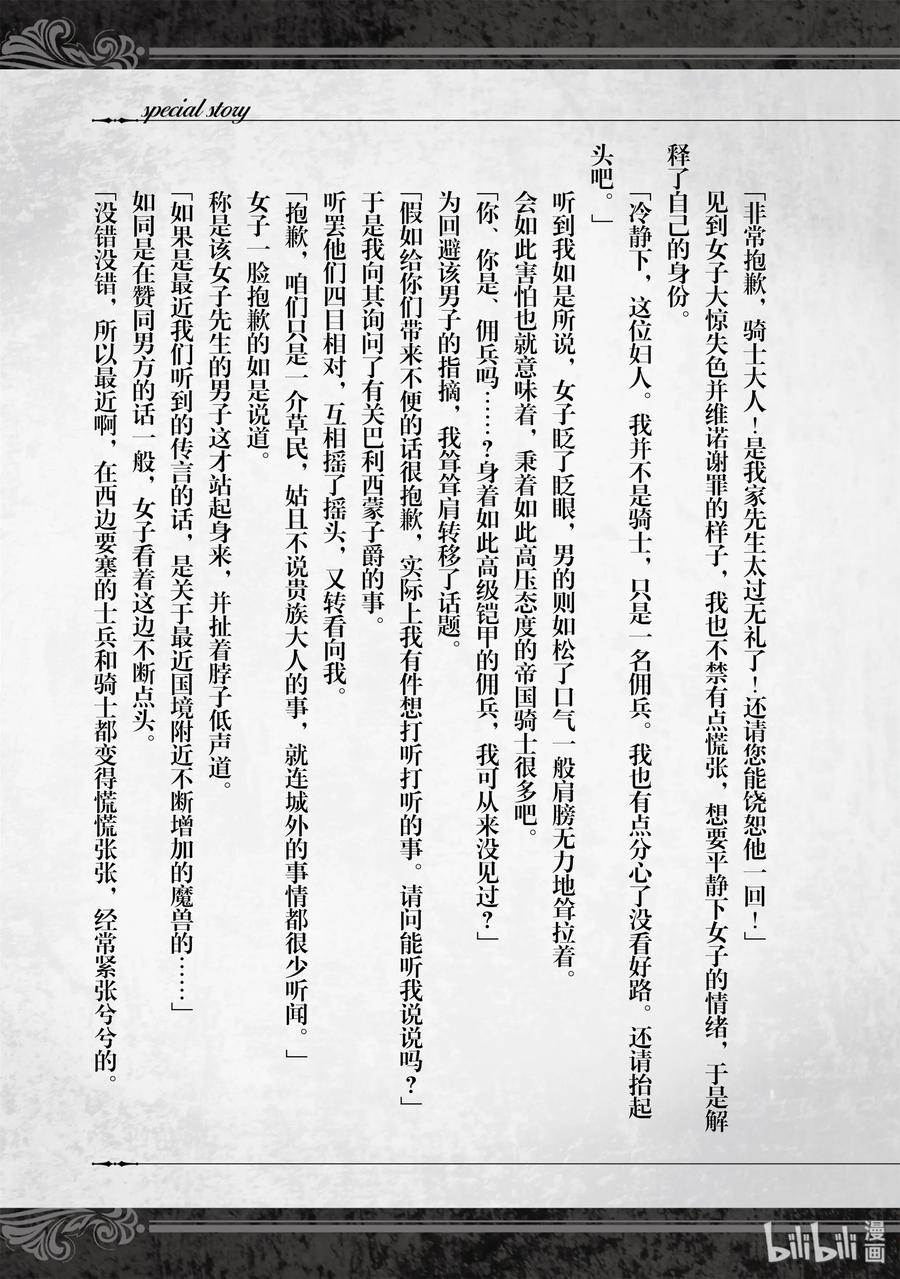 special story
「非常抱歉，骑士大人！是我家先生太过无礼了！还请您能饶恕他一回！」
见到女子大惊失色并维诺谢罪的样子，我也不禁有点慌张，想要平静下女子的情绪，于是解
释了自己的身份。
「冷静下，这位妇人。我并不是骑士，只是一名佣兵。我也有点分心了没看好路。还请抬起
头吧。」
听到我如是所说，女子眨了眨眼，男的则如松了口气一般肩膀无力地耸拉着。
会如此害怕也就意味着，秉着如此高压态度的帝国骑士很多吧。
「你、你是、佣兵吗……？身着如此高级铠甲的佣兵，我可从来没见过？」
为回避该男子的指摘，我耸耸肩转移了话题。
「假如给你们带来不便的话很抱歉，实际上我有件想打听打听的事。请问能听我说说吗？」
于是我向其询问了有关巴利西蒙子爵的事。
听罢他们四目相对，互相摇了摇头，又转看向我。
「抱歉，咱们只是一介草民，姑且不说贵族大人的事，就连城外的事情都很少听闻。」
女子一脸抱歉的如是说道。
称是该女子先生的男子这才站起身来，并扯着脖子低声道。
「如果是最近我们听到的传言的话，是关于最近国境附近不断增加的魔兽的……」
如同是在赞同男方的话一般，女子看着这边不断点头。
「没错没错，所以最近啊，在西边要塞的士兵和骑士都变得慌慌张张，经常紧张兮兮的。
bilibili
漫画